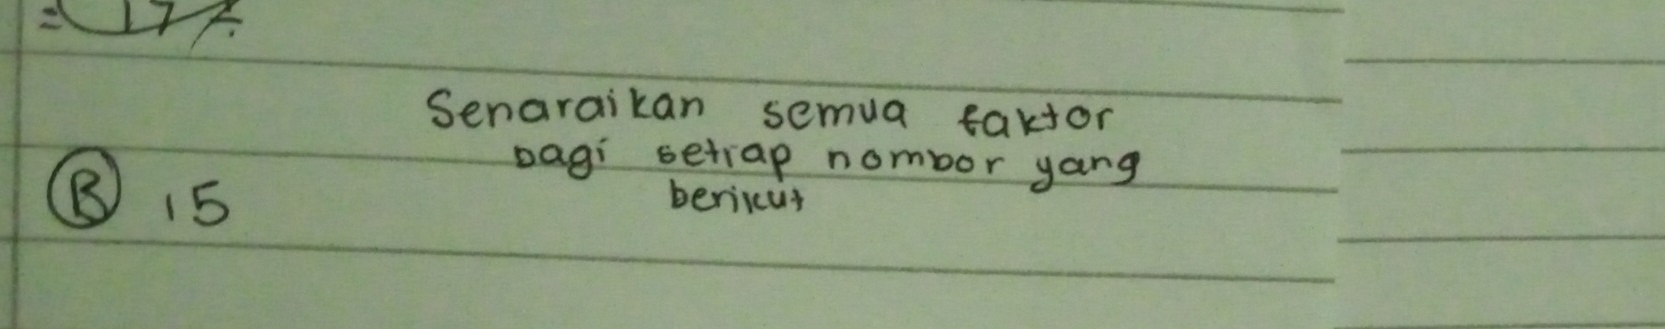 = 17
Senaraikan semua faktor
bagi setiap nombor yang
berikut
B 15